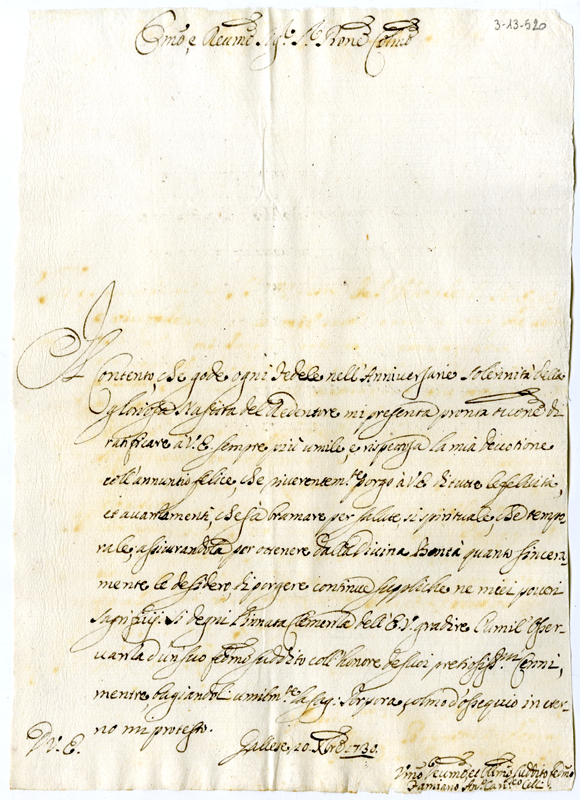 3-13-520
Em͂o, e Reum͂o Sig.r Sig.r Pron͂e Colm͂o
Il contento, che gode ogni Fedele nell'Anniversarie Solennità della
gloriosa Nascita del Redentore mi presenta pronta di
ratificare à V.E. sempre più umile, e rispettosa la mia devotione
coll'annuntio felice, che riverentem.te porgo à V.E. di tutte le felicità,
et avanzamenti, che sà bramare per salute sì spirituale, che tempo-
rale; assicurandola per ottenere dalla Divina Bontà quanto sincera-
mente le desidero, di porgere continue suppliche ne miei poveri
sagrifitij. Si degni l'innata Clemenza dell'E.V. gradire l'umil'osser-
vanza d'un suo fedm͂o suddito coll'honore de suoi pretiosiss.mi Cenni,
mentre, bagiandoli umilm.te la sag: Porpora, colmo d'ossequio in eter-
no mi protesto.
D. V. E.
Gallese, 20 Xbre 1730.
Um͂o Suddito fedm͂o
Damiano